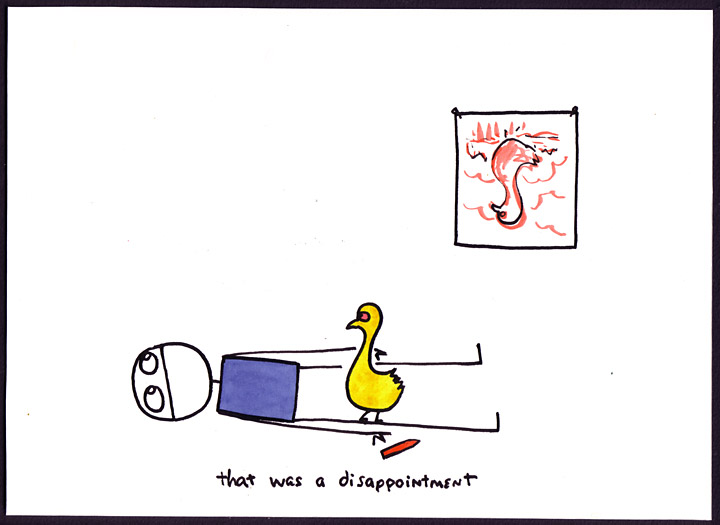 that was a disappointment